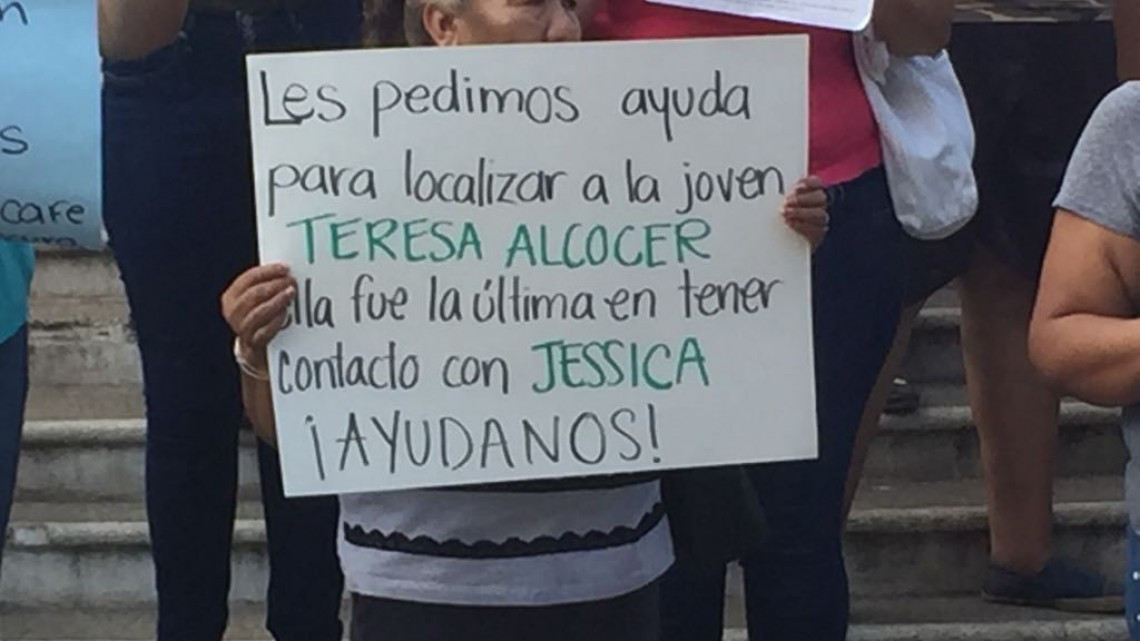 Les pedimos ayuda
para localizar a la joven
TERESA ALCOCER
ella fue la última en tener
contacto con JESSICA
¡AYUDANOS!
cafe